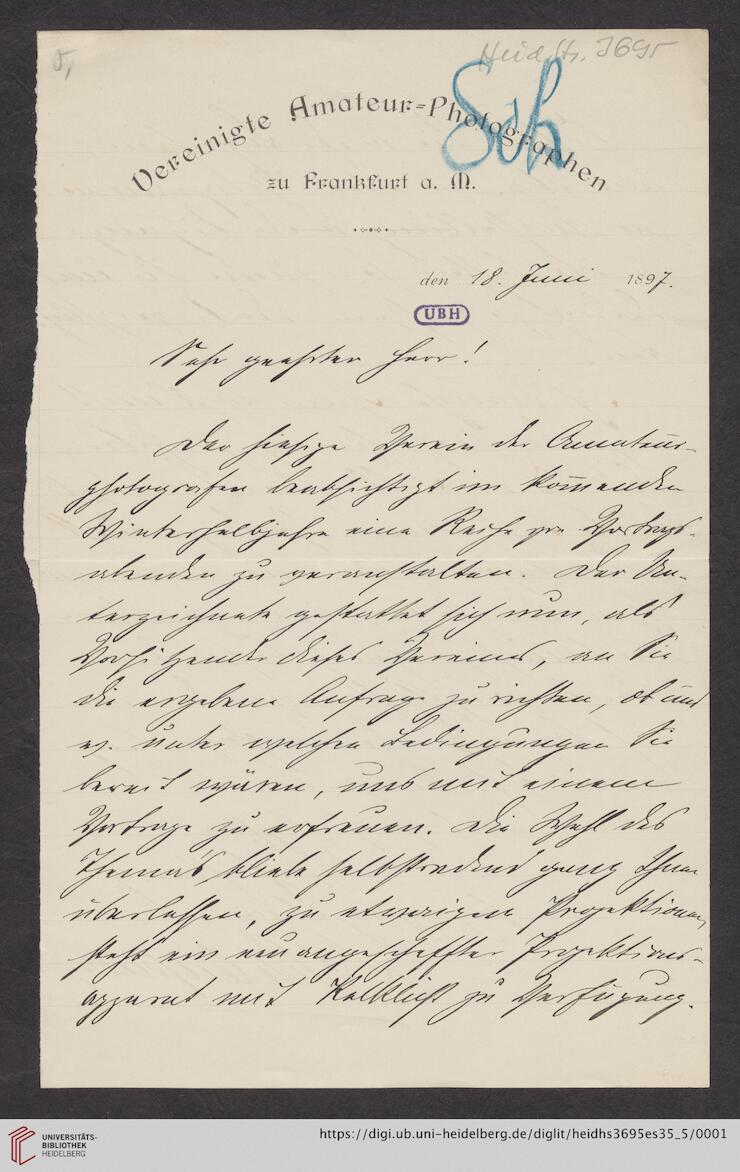 5,
Heid. Hs. 3695
Sch
Vereinigte Amateur-Photographen
zu Frankfurt a. M.
den 18. Juni 1897.
UBH
Sehr geehrter Herr!
Der hiesige Verein der Amateur-
photografen beabsichtigt im kom̄enden
Winterhalbjahre eine Reihe von Vortrags-
abenden zu veranstalten. Der Un-
terzeichnete gestattet sich nun, als
Vorsitzender dieses Vereines, an Sie
die ergebene Anfrage zu richten, ob und
ev. unter welchen Bedingungen Sie
bereit wären, uns mit einem
Vortrage zu erfreuen. Die Wahl des
Thema's bliebe selbstredend ganz Ihnen
überlassen, zu etwaigen Projektionen
steht ein neu angeschaffter Projektions-
apparat mit Kalklicht zu Verfügung.
UNIVERSITÄTS-
BIBLIOTHEK
HEIDELBERG
https://digi.ub.uni-heidelberg.de/diglit/heidhs3695es35_5/0001